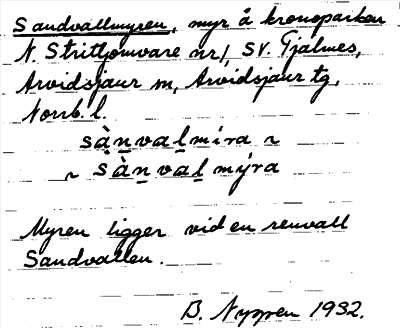 Sandvallmyren, myr å kronoparken
N. Strittjomvare nr 1, SV. Tjålmes,
Arvidsjaur sn, Arvidsjaur tg,
Norrb. l.
sànvalmira ~
~ sànvalmýra
Myren ligger vid en renvall
Sandvallen.
B. Nygren 1932.